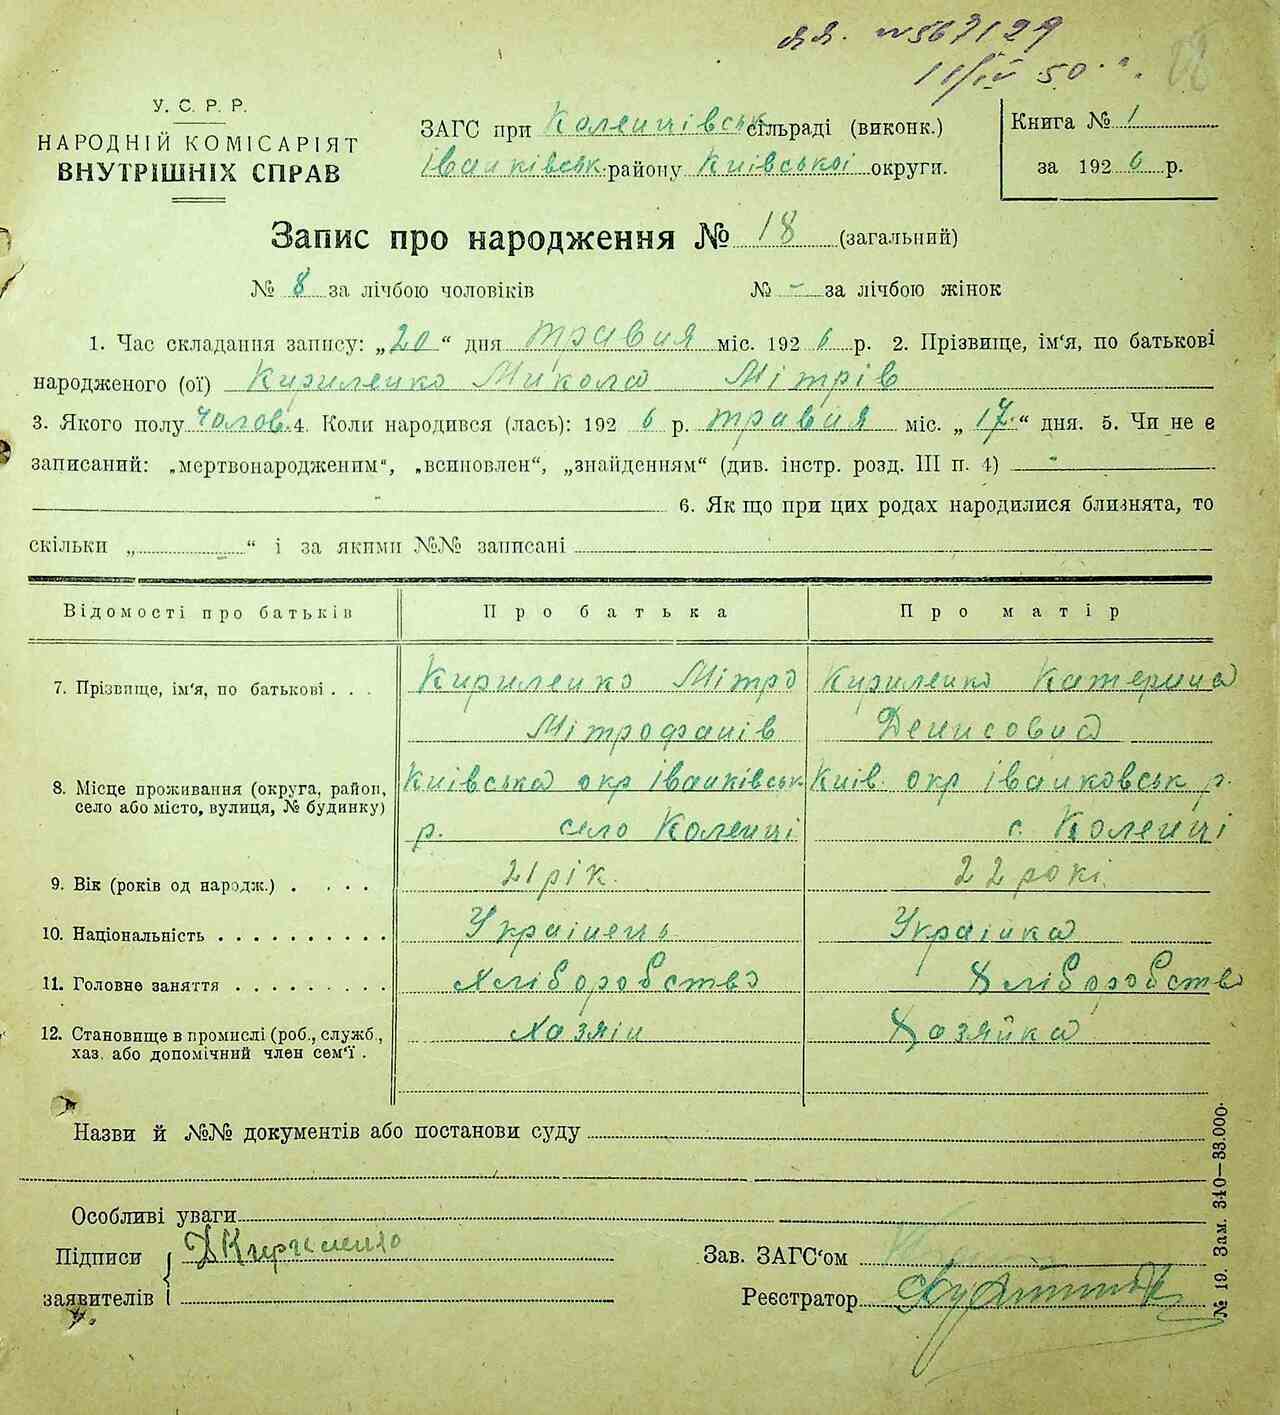 ЯЯ. №567129
11/IV 50.
У. С. Р. Р.
НАРОДНІЙ КОМІСАРІЯТ
ВНУТРІШНІХ СПРАВ
ЗАГС при Коленцівськ сільраді (виконк.)
Іванківськ. району Київської округи.
Книга № 1
за 1926 р.
Запис про народження № 18 (загальний)
№ 8 за лічбою чоловіків № - за лічбою жінок
1. Час складання запису: „20“ дня травня міс. 1926 р. 2. Прізвище, ім‘я, по батькові
народженого (ої) Кириленко Микола Мітрів
3. Якого полу чолов. 4. Коли народився (лась): 1926 р. травня міс. „17.“ дня. 5. Чи не є
записаний: „мертвонародженим“, „всиновлен“, „знайденням“ (див. інстр. розд. III п. 4) -
6. Як що при цих родах народилися близнята, то
скільки „ “ і за якими №№ записані
Відомості про батьків Про батька Про матір
7. Прізвище, ім‘я, по батькові . . . Кириленко Мітро Кириленко Катерина
Мітрофанів Денисовна
8. Місце проживання (округа, район, Київська окр Іванківськ Київ. окр іванковськ р.
село або місто, вулиця, № будинку) р. село Коленці с. Коленці
9. Вік (років од народж.) . . . . 21 рік. 22 рокі.
10. Національність . . . . . . . . . . Українець Українка
11. Головне заняття . . . . . . . . . Хліборобство Хліборобство
12. Становище в промислі (роб., служб., Хазяін Хозяйка
хаз. або допомічний член сем‘ї .
Назви й №№ документів або постанови суду
Особливі уваги
Підписи Д Кириленко Зав. ЗАГС‘ом
заявителів Реєстратор
№ 19. Зам. 340—33.000.